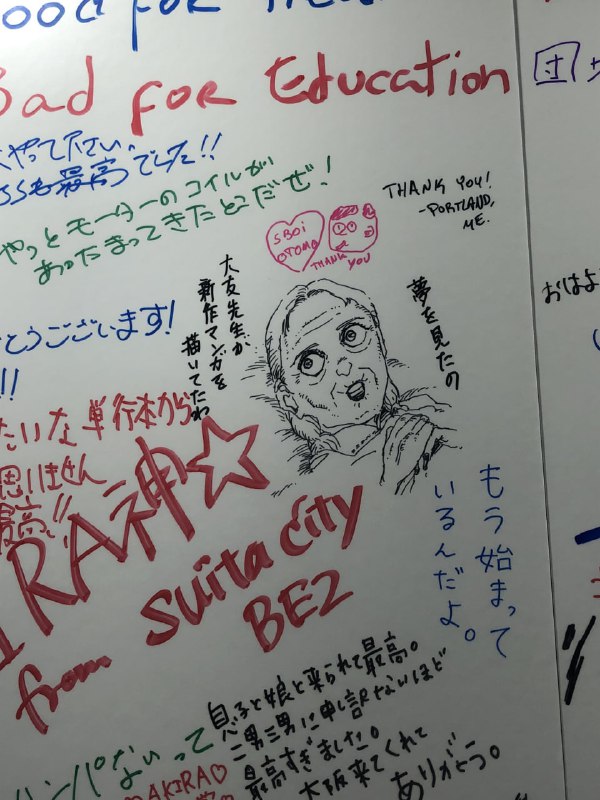 Good for Health
Bad for Education
やって下さい.
SSも最高でした!!
やっとモーターのコイルが
あったまってきたとこだぜ!
THANK YOU!
-PORTLAND,
ME.
SBOi
OTOMO
THANK YOU
団
おはよ
大友先生が
新作マンガを
描いてたわ
夢を見たの
とうございます!
!!
たいな単行本から
思いません
最高!!
IRA神☆
from suita city
BE2
もう始まって
いるんだよ。
息子と娘と来られて最高。
二男三男に申し訳ないほど
最高すぎました。
大阪来てくれて
ありがとう。
ハンパないって
♡AKIRA♡